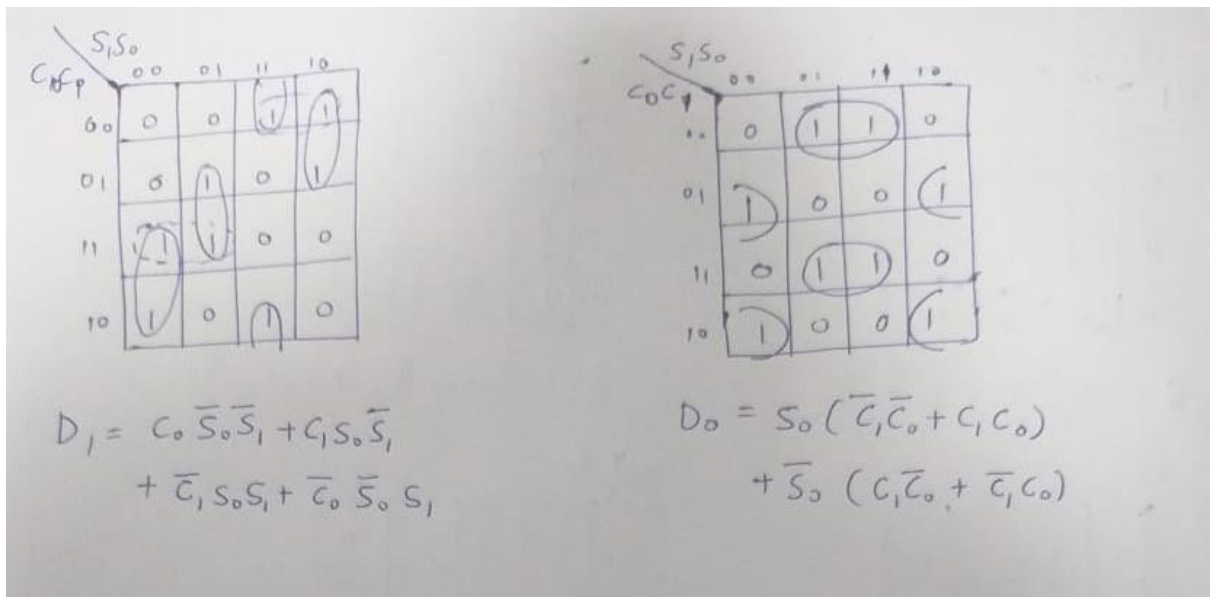 S₁S₀
00 01 11 10
00 0 0 1 1
01 0 1 0 1
11 1 1 0 0
10 1 0 1 0
D₁ = C₀ S̅₀ S̅₁ + C₁ S₀ S̅₁
+ C̅₁ S₀ S₁ + C̅₀ S̅₀ S₁
S₁S₀
C₀C₁
00 01 11 10
00 0 1 1 0
01 1 0 0 1
11 0 1 1 0
10 1 0 0 1
D₀ = S₀ ( C̅₁ C̅₀ + C₁ C₀ )
+ S̅₀ ( C₁ C̅₀ + C̅₁ C₀ )